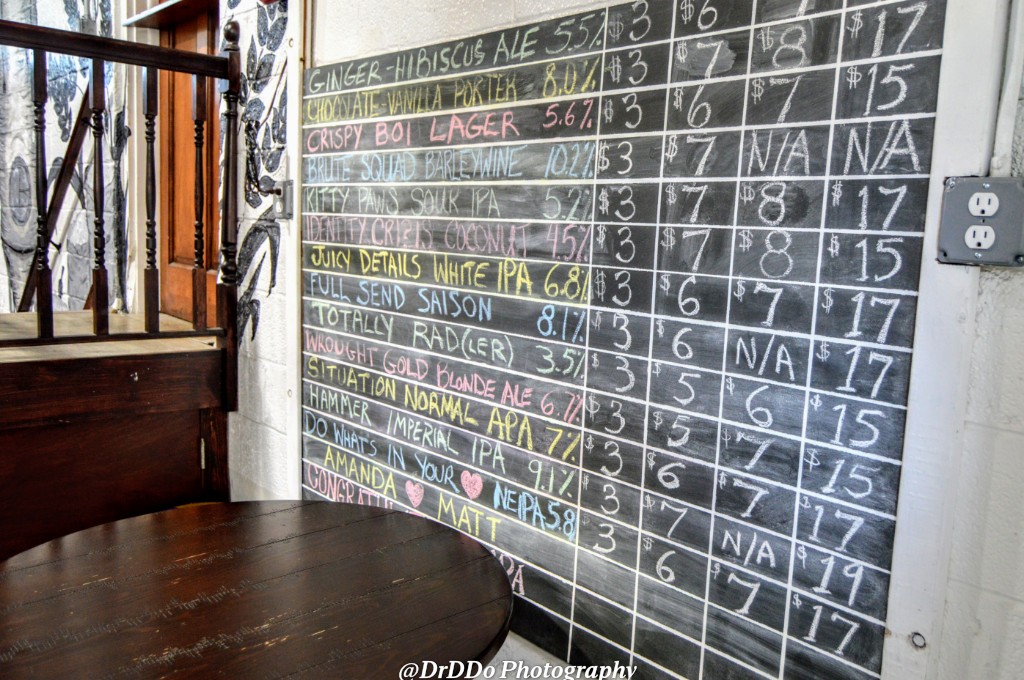 GINGER-HIBISCUS ALE 5.5% $3 $6
CHOCOLATE-VANILLA PORTER 8.0% $3 $7 $8 $17
CRISPY BOI LAGER 5.6% $3 $6 $7 $15
BRUTE SQUAD BARLEYWINE 10.2% $3 $7 N/A N/A
KITTY PAWS SOUR IPA 5.2% $3 $7 $8 $17
IDENTITY CRISIS COCONUT 4.5% $3 $7 $8 $15
JUICY DETAILS WHITE IPA 6.8% $3 $6 $7 $17
FULL SEND SAISON 8.1% $3 $6 N/A $17
TOTALLY RAD(LER) 3.5% $3 $5 $6 $15
WROUGHT GOLD BLONDE ALE 6.7% $3 $5 $7 $15
SITUATION NORMAL APA 7% $3 $6 $7 $17
HAMMER IMPERIAL IPA 9.1% $3 $7 N/A $19
DO WHAT'S IN YOUR ♥ NEIPA 5.8 $3 $6 $7 $17
AMANDA ♥ MATT
@DrDDo Photography